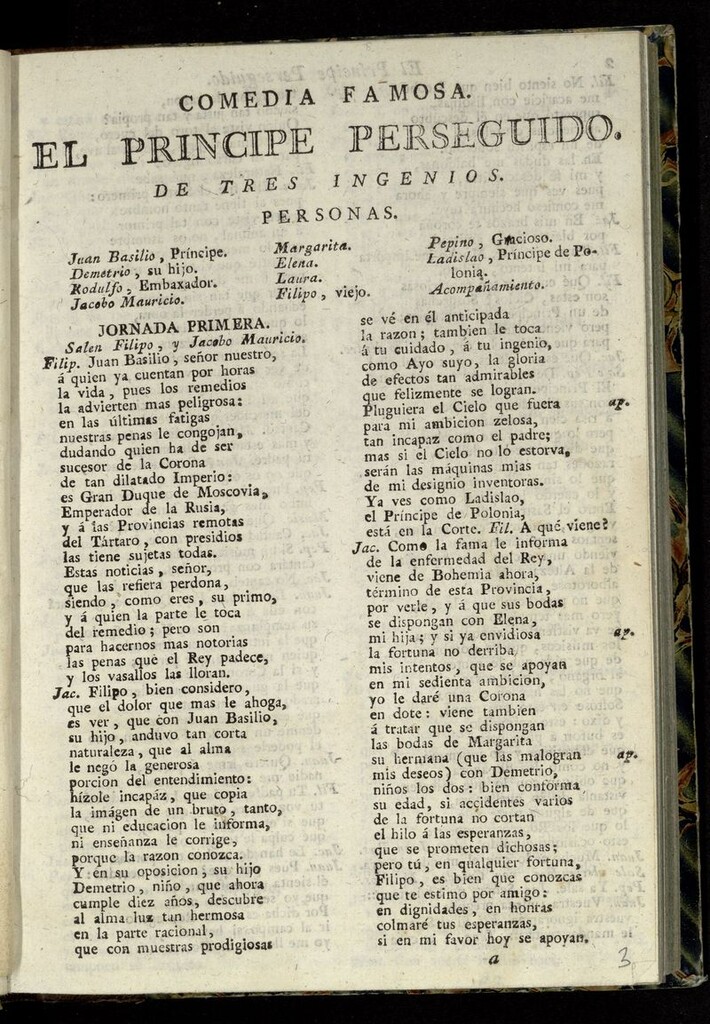 COMEDIA FAMOSA.
EL PRINCIPE PERSEGUIDO.
DE TRES INGENIOS.
PERSONAS.
Juan Basilio, Príncipe.
Demetrio, su hijo.
Rodulfo, Embaxador.
Jacobo Mauricio.
Margarita.
Elena.
Laura.
Filipo, viejo.
Pepino, Gracioso.
Ladislao, Príncipe de Po-
lonia.
Acompañamiento.
JORNADA PRIMERA.
Salen Filipo, y Jacobo Mauricio.
Filip. Juan Basilio, señor nuestro,
á quien ya cuentan por horas
la vida, pues los remedios
la advierten mas peligrosa:
en las últimas fatigas
nuestras penas le congojan,
dudando quien ha de ser
sucesor de la Corona
de tan dilatado Imperio:
es Gran Duque de Moscovia,
Emperador de la Rusia,
y á las Provincias remotas
del Tártaro, con presidios
las tiene sujetas todas.
Estas noticias, señor,
que las refiera perdona,
siendo, como eres, su primo,
y á quien la parte le toca
del remedio; pero son
para hacernos mas notorias
las penas que el Rey padece,
y los vasallos las lloran.
Jac. Filipo, bien considero,
que el dolor que mas le ahoga,
es ver, que con Juan Basilio,
su hijo, anduvo tan corta
naturaleza, que al alma
le negó la generosa
porcion del entendimiento:
hízole incapáz, que copia
la imágen de un bruto, tanto,
que ni educacion le informa,
ni enseñanza le corrige,
porque la razon conozca.
Y en su oposicion, su hijo
Demetrio, niño, que ahora
cumple diez años, descubre
al alma luz tan hermosa
en la parte racional,
que con muestras prodigiosas
se vé en él anticipada
la razon; tambien le toca
á tu cuidado, á tu ingenio,
como Ayo suyo, la gloria
de efectos tan admirables
que felizmente se logran.
Pluguiera el Cielo que fuera ap.
para mi ambicion zelosa,
tan incapaz como el padre;
mas si el Cielo no lo estorva,
serán las máquinas mias
de mi designio inventoras.
Ya ves como Ladislao,
el Príncipe de Polonia,
está en la Corte. Fil. A qué viene?
Jac. Como la fama le informa
de la enfermedad del Rey,
viene de Bohemia ahora,
término de esta Provincia,
por verle, y á que sus bodas
se dispongan con Elena,
mi hija; y si ya envidiosa ap.
la fortuna no derriba
mis intentos, que se apoyan
en mi sedienta ambicion,
yo le daré una Corona
en dote: viene tambien
á tratar que se dispongan
las bodas de Margarita
su hermana (que las malogran ap.
mis deseos) con Demetrio,
niños los dos: bien conforma
su edad, si accidentes varios
de la fortuna no cortan
el hilo á las esperanzas,
que se prometen dichosas;
pero tú, en qualquier fortuna,
Filipo, es bien que conozcas
que te estimo por amigo:
en dignidades, en honras
colmaré tus esperanzas,
si en mi favor hoy se apoyan.
a
3